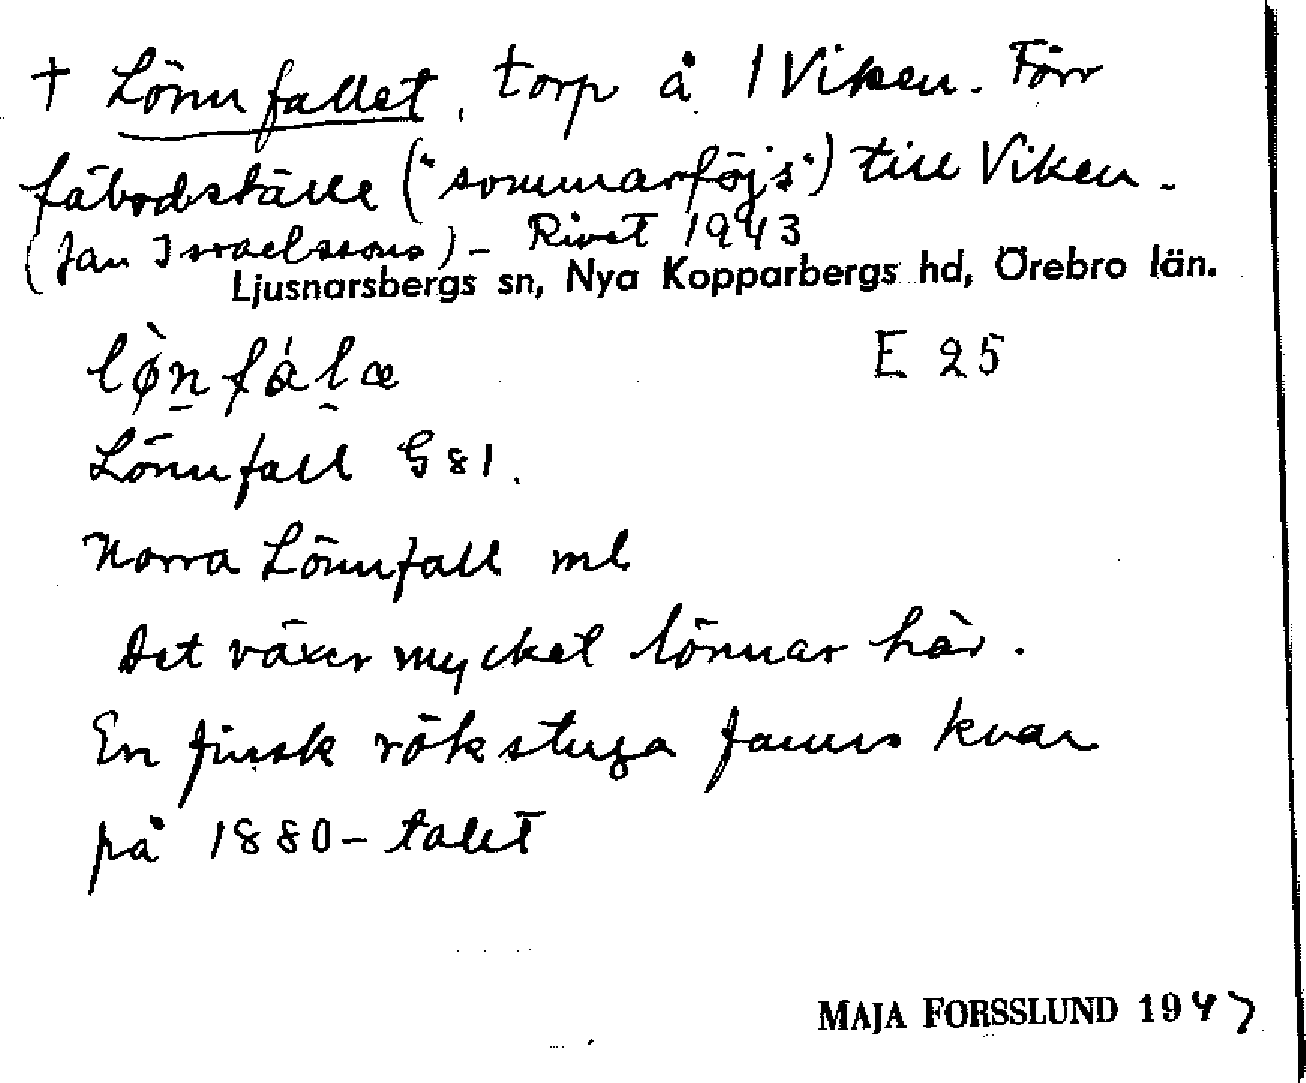 † Lönnfallet, torp å 1 Viken. Förr
fäbodställe ("sommarföjs") till Viken.
(Jan Israelssons) - Rivet 1943
Ljusnarsbergs sn, Nya Kopparbergs hd, Örebro län.
lø̀n̲fál̲æ E 25
Lönnfall G 81.
Norra Lönnfall ml
Det växer mycket lönnar här.
En finsk rökstuga fanns kvar
på 1880-talet
MAJA FORSSLUND 1947